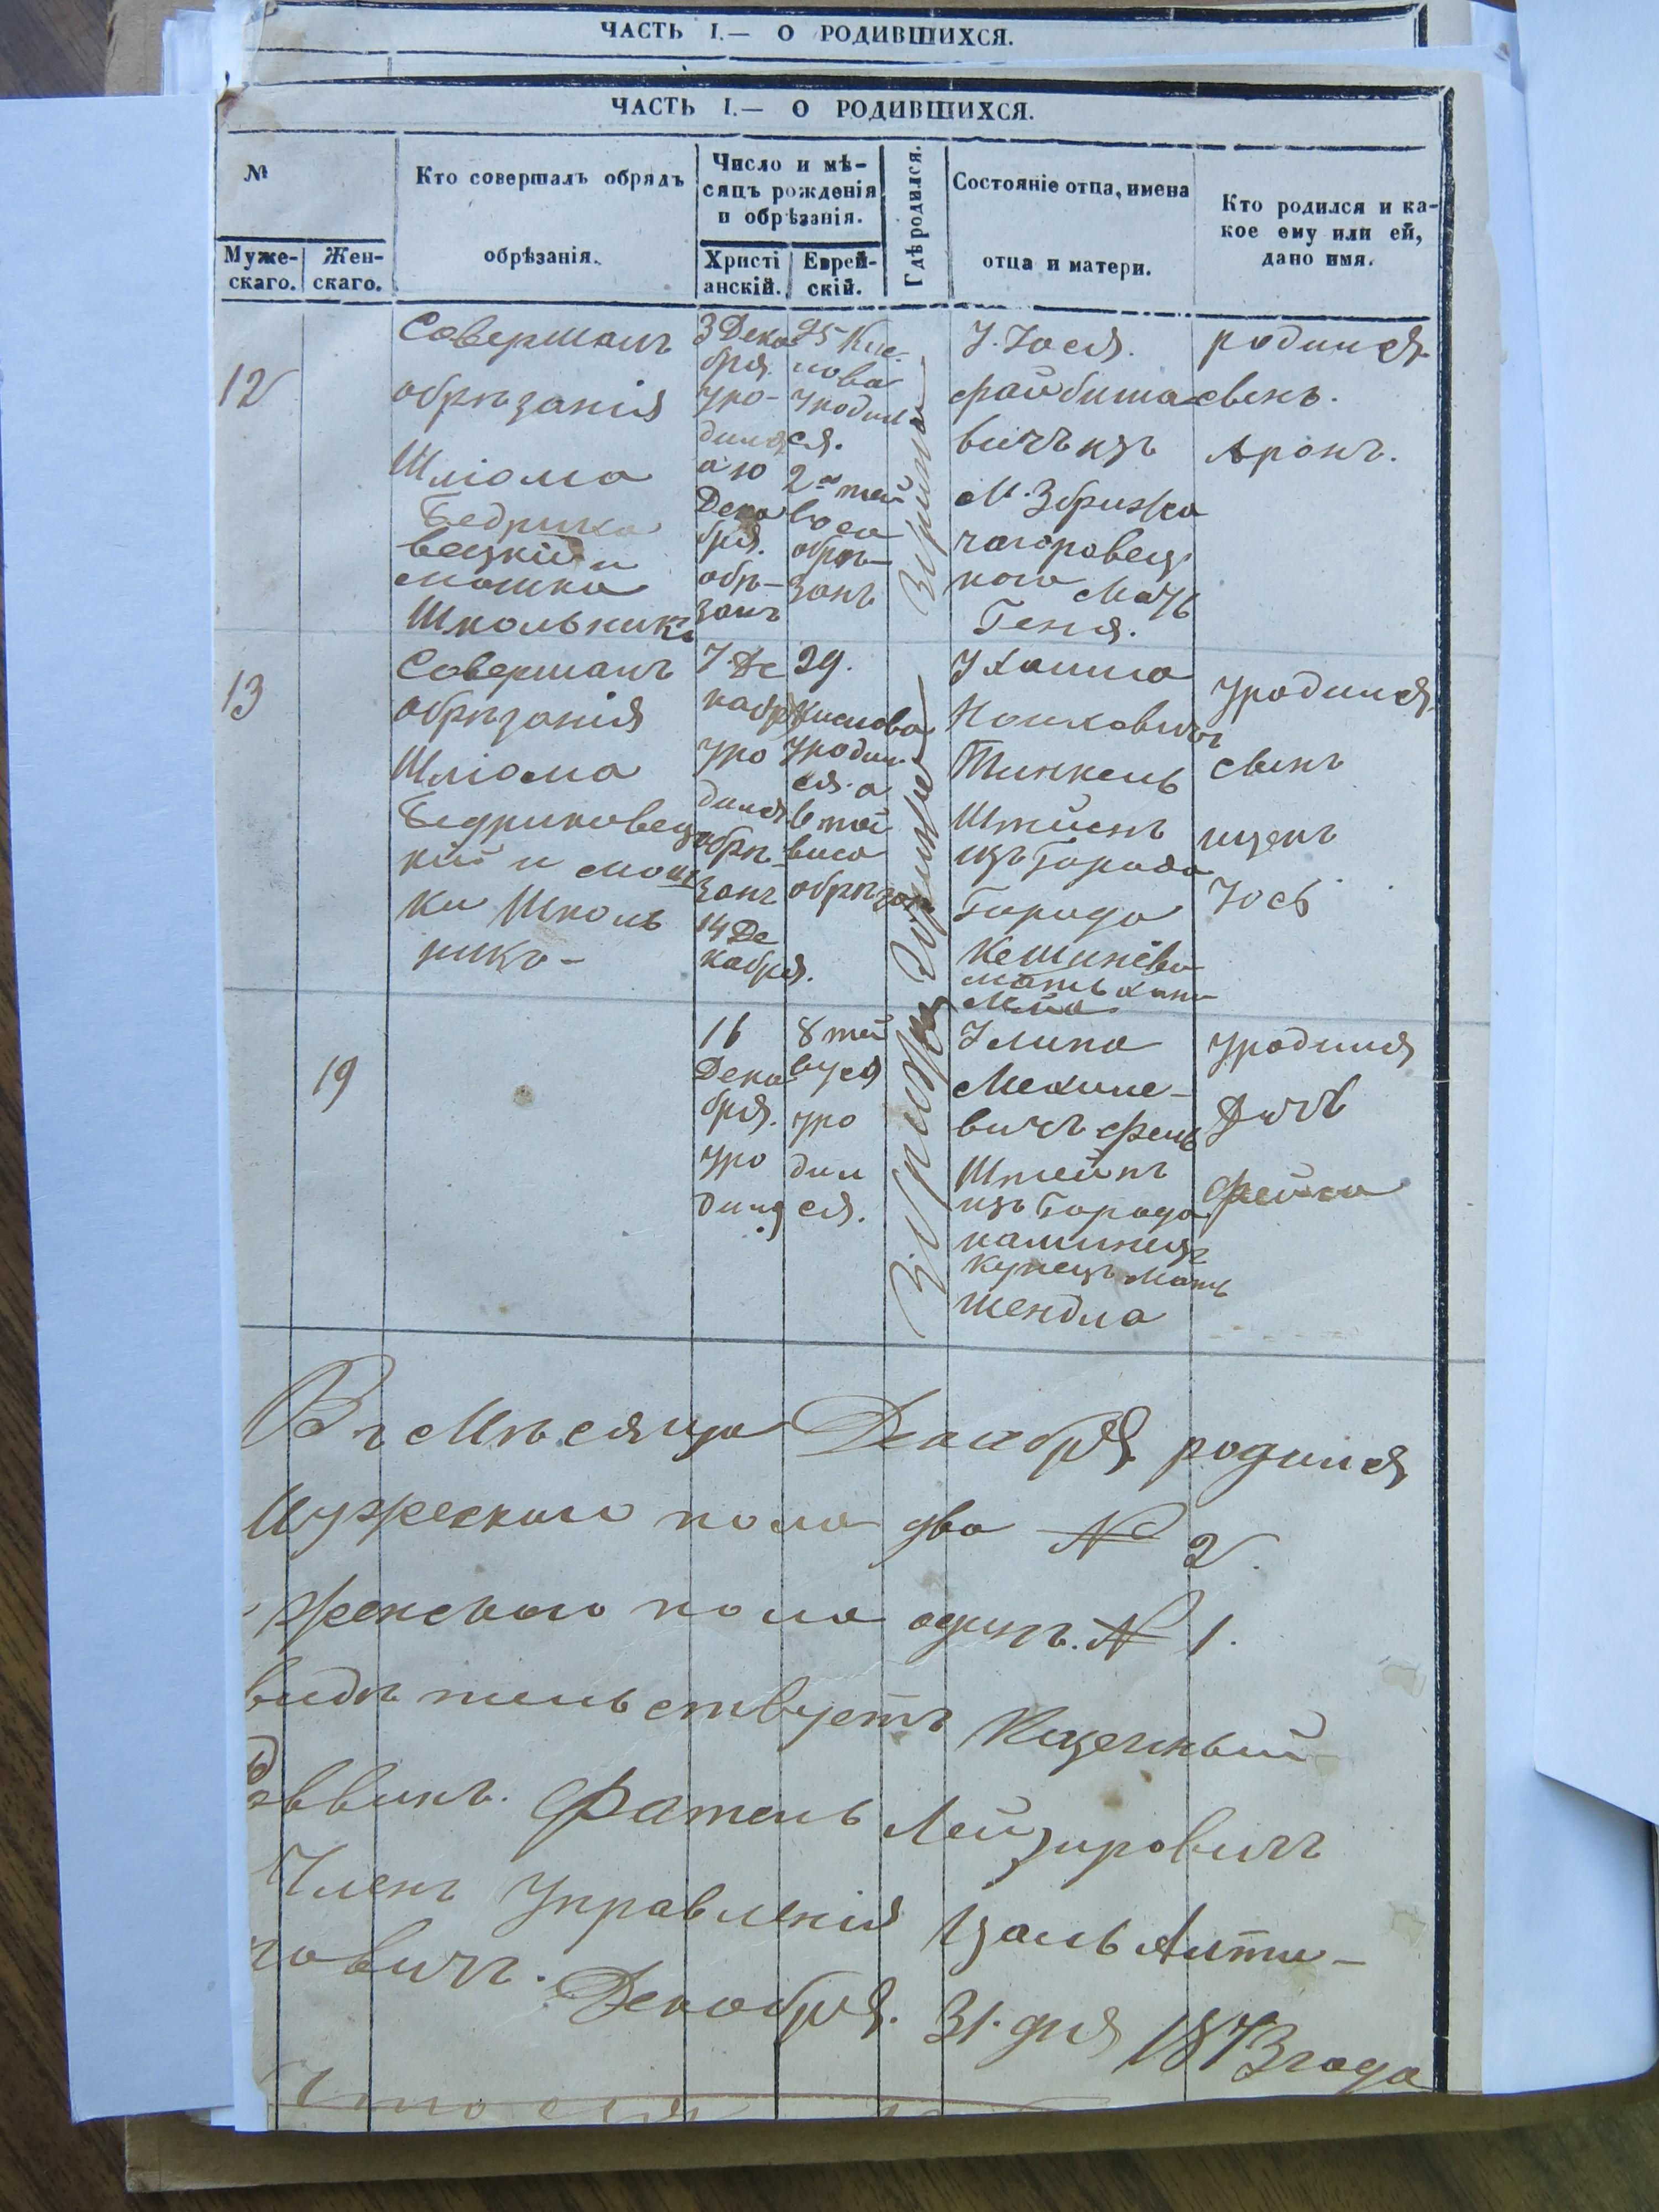 ЧАСТЬ I.— О РОДИВШИХСЯ.
ЧАСТЬ I.— О РОДИВШИХСЯ.
№
Муже-
скаго.
Жен-
скаго.
Кто совершалъ обрядъ
обрѣзанія.
Число и мѣ-
сяцъ рожденія
и обрѣзанія.
Христі
анскій.
Еврей-
скій.
Гдѣ родился.
Состояніе отца, имена
отца и матери.
Кто родился и ка-
кое ему или ей,
дано имя.
12
Совершалъ
обрѣзанія
Шліома
Бедрико
вецкій и
мошко
Школьникъ
3 Дека
бря.
уро-
дился
а 10
Дека
бря.
обрѣ-
занъ
25 Кис
лова
уродил
ся.
2 тей
веса
обрѣ-
занъ
У. Іося.
файбиша
вичъ изъ
М. Збрижа
кого Мать
Геня.
родился
сынъ.
Аронъ.
13
Совершалъ
обрѣзанія
Шліома
Бедриковец
кій и мош
ка Школь
никъ-
7 Де
кабря
уро
дился
обрѣ
занъ
14 Де
кабря.
29.
Кислова
уродил
ся. а
6 тей
веса
обрѣзан
У Хаима
Тинкель
Штейнъ
изъ Города
Города
Кешинёва
мать Хана
уродился
сынъ
ицекъ
Іось
19
16
Дека
бря.
уро
дился
8 тей
веся
уро
дил
ся.
У липа
Мехиле-
вичъ фень
Штейнъ
изъ Города
каминецъ
купецъ мать
Шендла
уродился
Дочь
фейга
Въ Мѣсяца Декабря родился
Мужескаго пола два № 2.
женскаго пола одинъ. № 1.
видѣтельствуетъ Казенный
Раввинъ. Фатель Лейзировичъ
Членъ Управленія Цаль Алте-
ровичъ. Декабря. 31. дня 1873 года